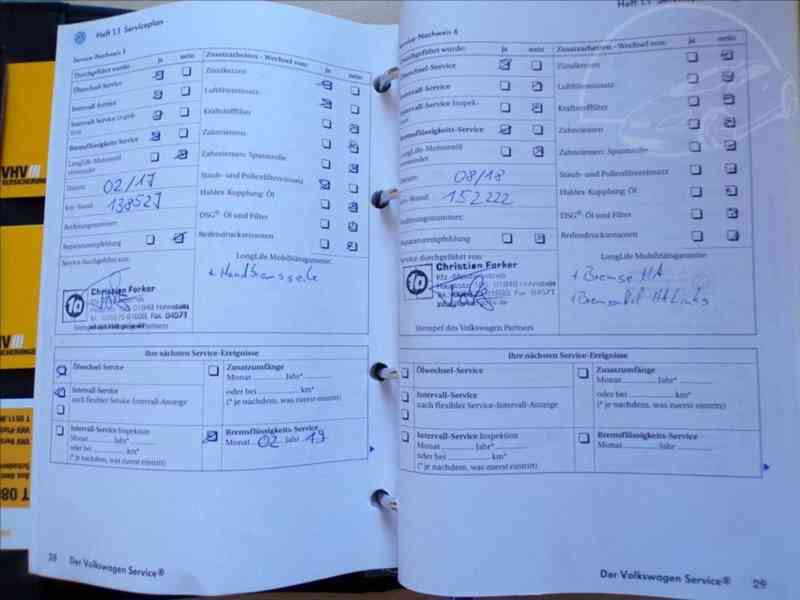 Heft 1.1 Serviceplan
Durchgeführt wurde: ja nein
Ölwechsel-Service
Intervall-Service
Intervall-Service Inspektion
Bremsflüssigkeits-Service
LongLife-Motorenöl verwendet
Datum: 02/17
km-Stand: 138527
Rechnungsnummer:
Reparaturempfehlung
Service durchgeführt von:
Christian Forker
Stempel des Volkswagen Partners
Zusatzarbeiten - Wechsel von: ja nein
Zündkerzen
Luftfiltereinsatz
Kraftstofffilter
Zahnriemen
Zahnriemen: Spannrolle
Staub- und Pollenfiltereinsatz
Haldex-Kupplung: Öl
DSG® Öl und Filter
Reifendrucksensoren
LongLife Mobilitätsgarantie:
+ Handbremsseile
Ihre nächsten Service-Ereignisse
Ölwechsel-Service
Intervall-Service
nach flexibler Service-Intervall-Anzeige
Intervall-Service Inspektion
Monat Jahr*
oder bei km*
(* je nachdem, was zuerst eintritt)
Zusatzumfänge
Monat Jahr*
oder bei km*
(* je nachdem, was zuerst eintritt)
Bremsflüssigkeits-Service
Monat 02 Jahr 19
28 Der Volkswagen Service®
Service-Nachweis 6
Durchgeführt wurde: ja nein
Ölwechsel-Service
Intervall-Service
Intervall-Service Inspek-
Bremsflüssigkeits-Service
LongLife-Motorenöl
08/18
km-Stand: 152222
Rechnungsnummer:
Reparaturempfehlung
Service durchgeführt von:
Christian Forker
Stempel des Volkswagen Partners
Zusatzarbeiten - Wechsel von: ja nein
Zündkerzen
Luftfiltereinsatz
Kraftstofffilter
Zahnriemen
Zahnriemen: Spannrolle
Staub- und Pollenfiltereinsatz
Haldex-Kupplung: Öl
DSG® Öl und Filter
Reifendrucksensoren
LongLife Mobilitätsgarantie:
+ Bremse HA
Ihre nächsten Service-Ereignisse
Ölwechsel-Service
Intervall-Service
nach flexibler Service-Intervall-Anzeige
Intervall-Service Inspektion
Monat Jahr*
oder bei km*
(* je nachdem, was zuerst eintritt)
Zusatzumfänge
Monat Jahr*
oder bei km*
(* je nachdem, was zuerst eintritt)
Bremsflüssigkeits-Service
Monat Jahr
Der Volkswagen Service® 29
VHV
VERSICHERUNGEN